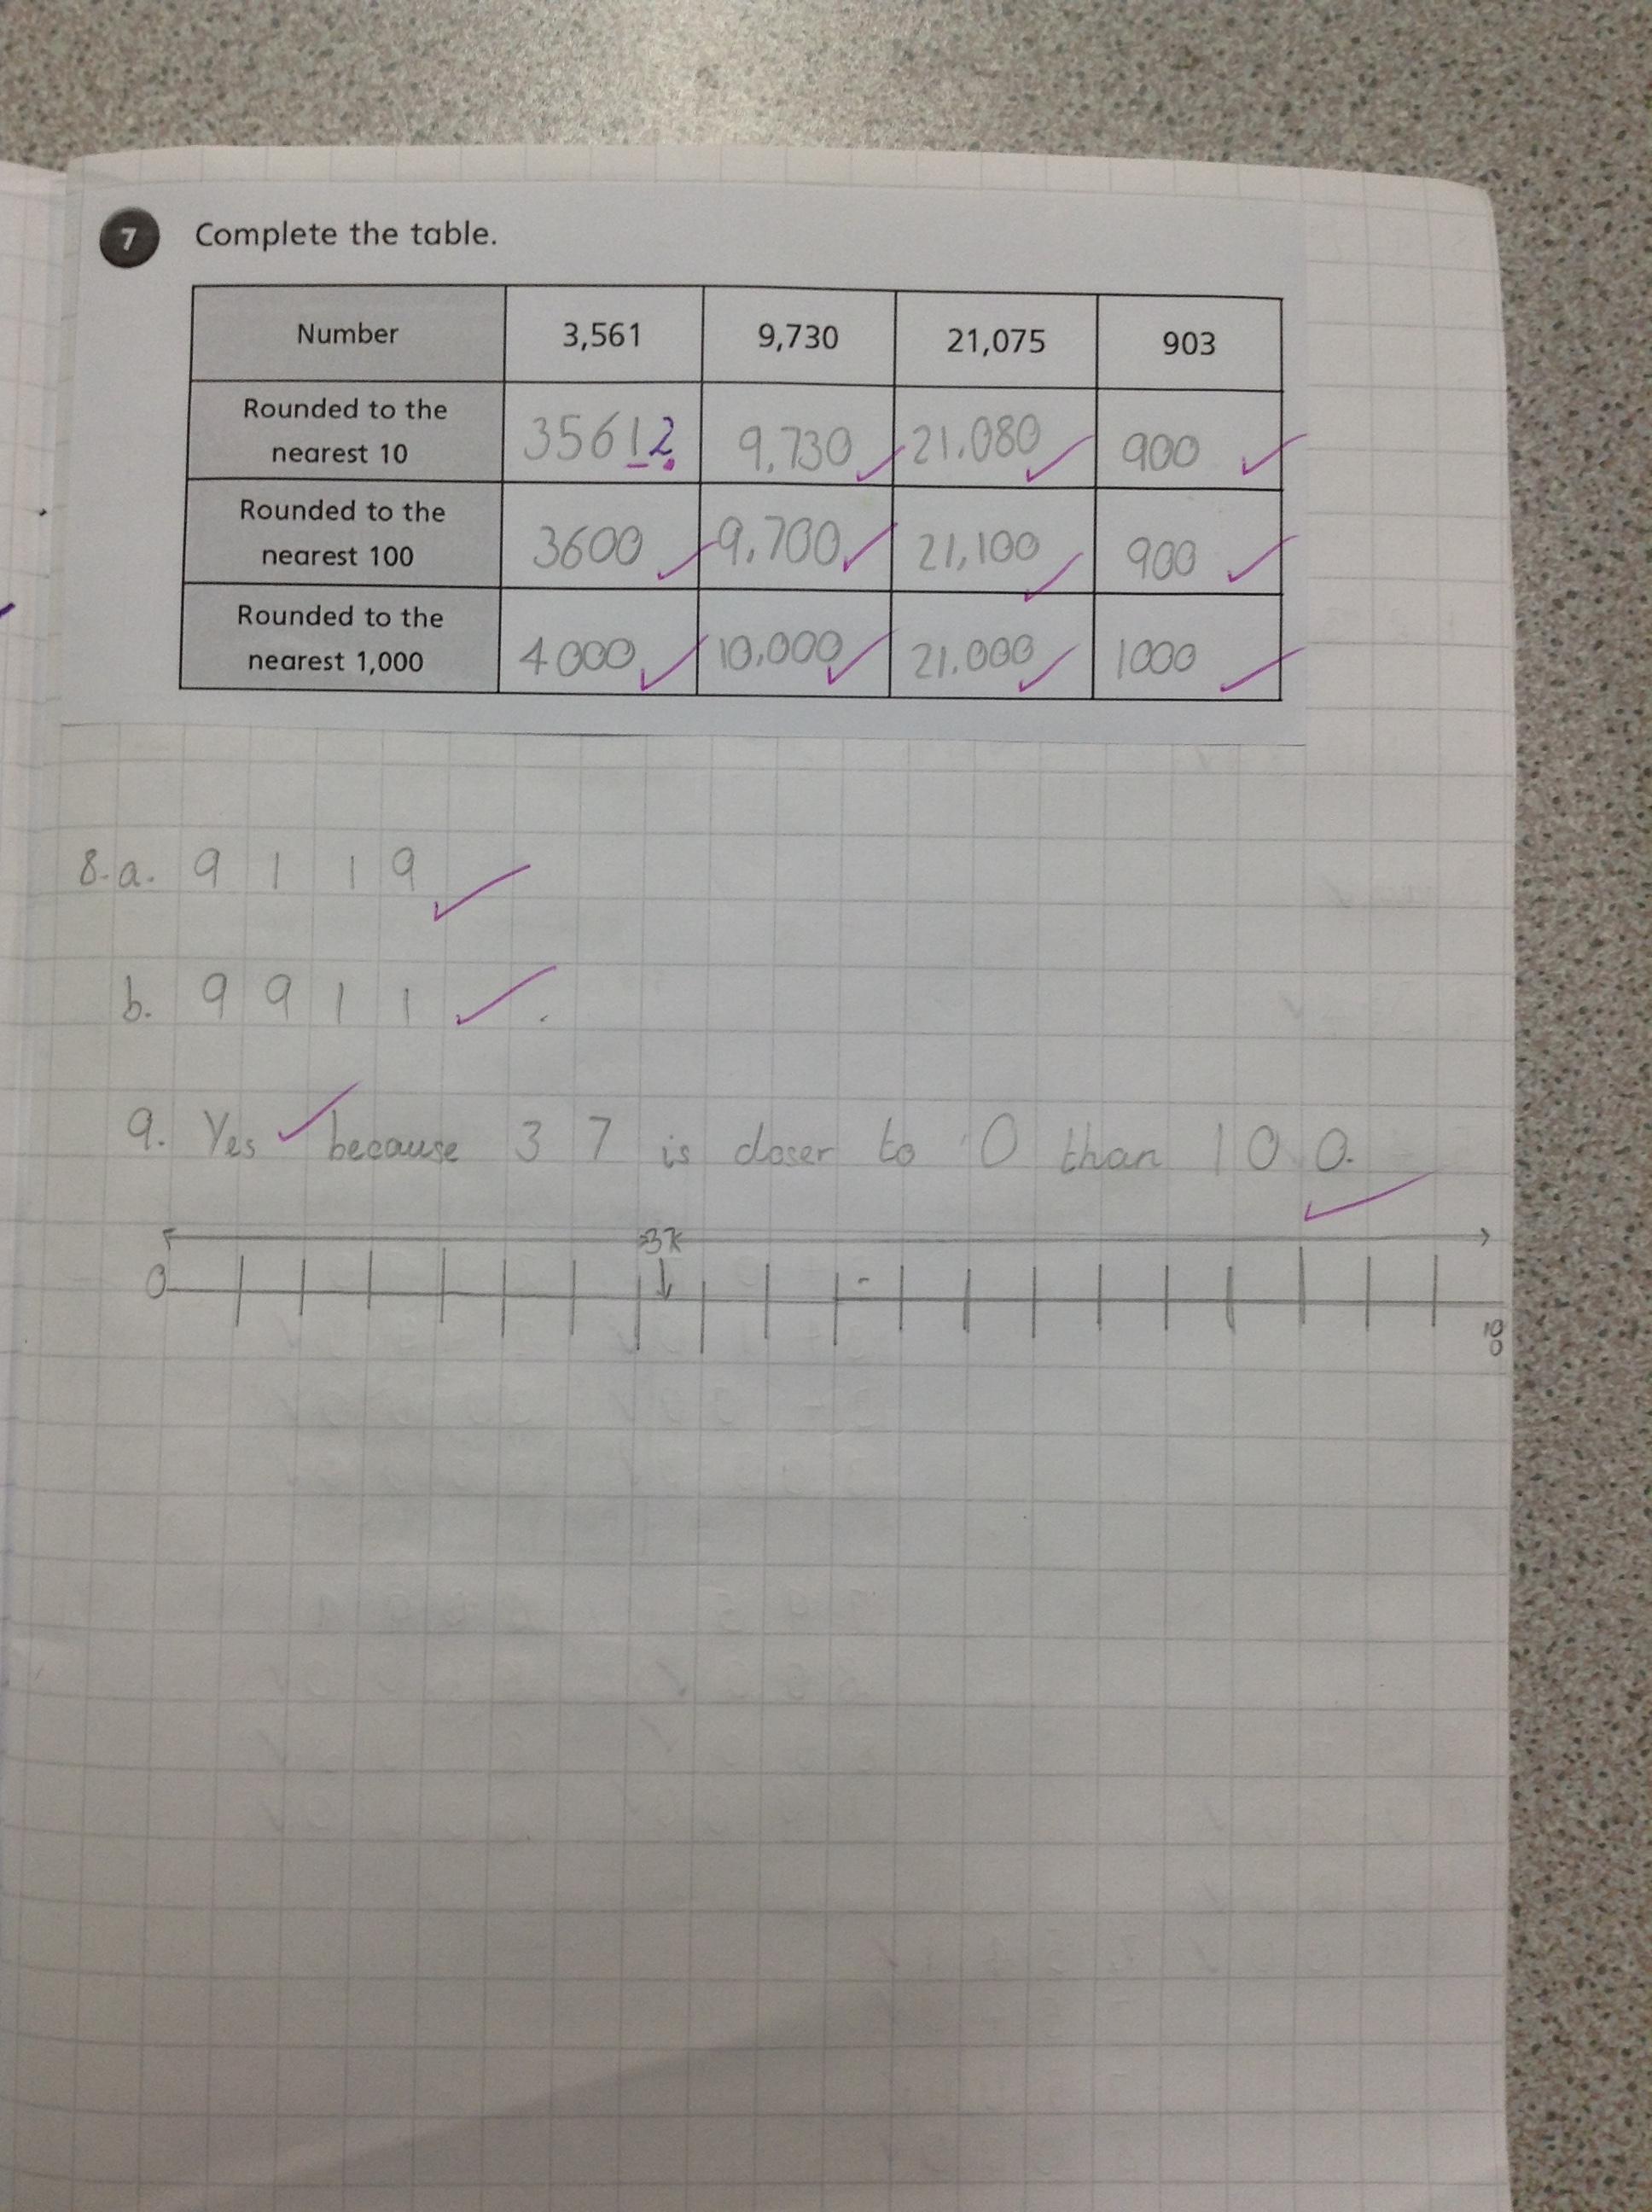 7 Complete the table.
Number 3,561 9,730 21,075 903
Rounded to the
nearest 10
3561 2. 9,730 21.080 900
Rounded to the
nearest 100
3600 9,700 21,100 900
Rounded to the
nearest 1,000
4000 10,000 21.000 1000
8.a. 9 1 1 9
b. 9 9 1 1
9. Yes because 3 7 is closer to 0 than 1 0 0.
37
0
100